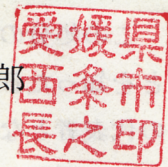 郎
愛媛県
西条市
長之印